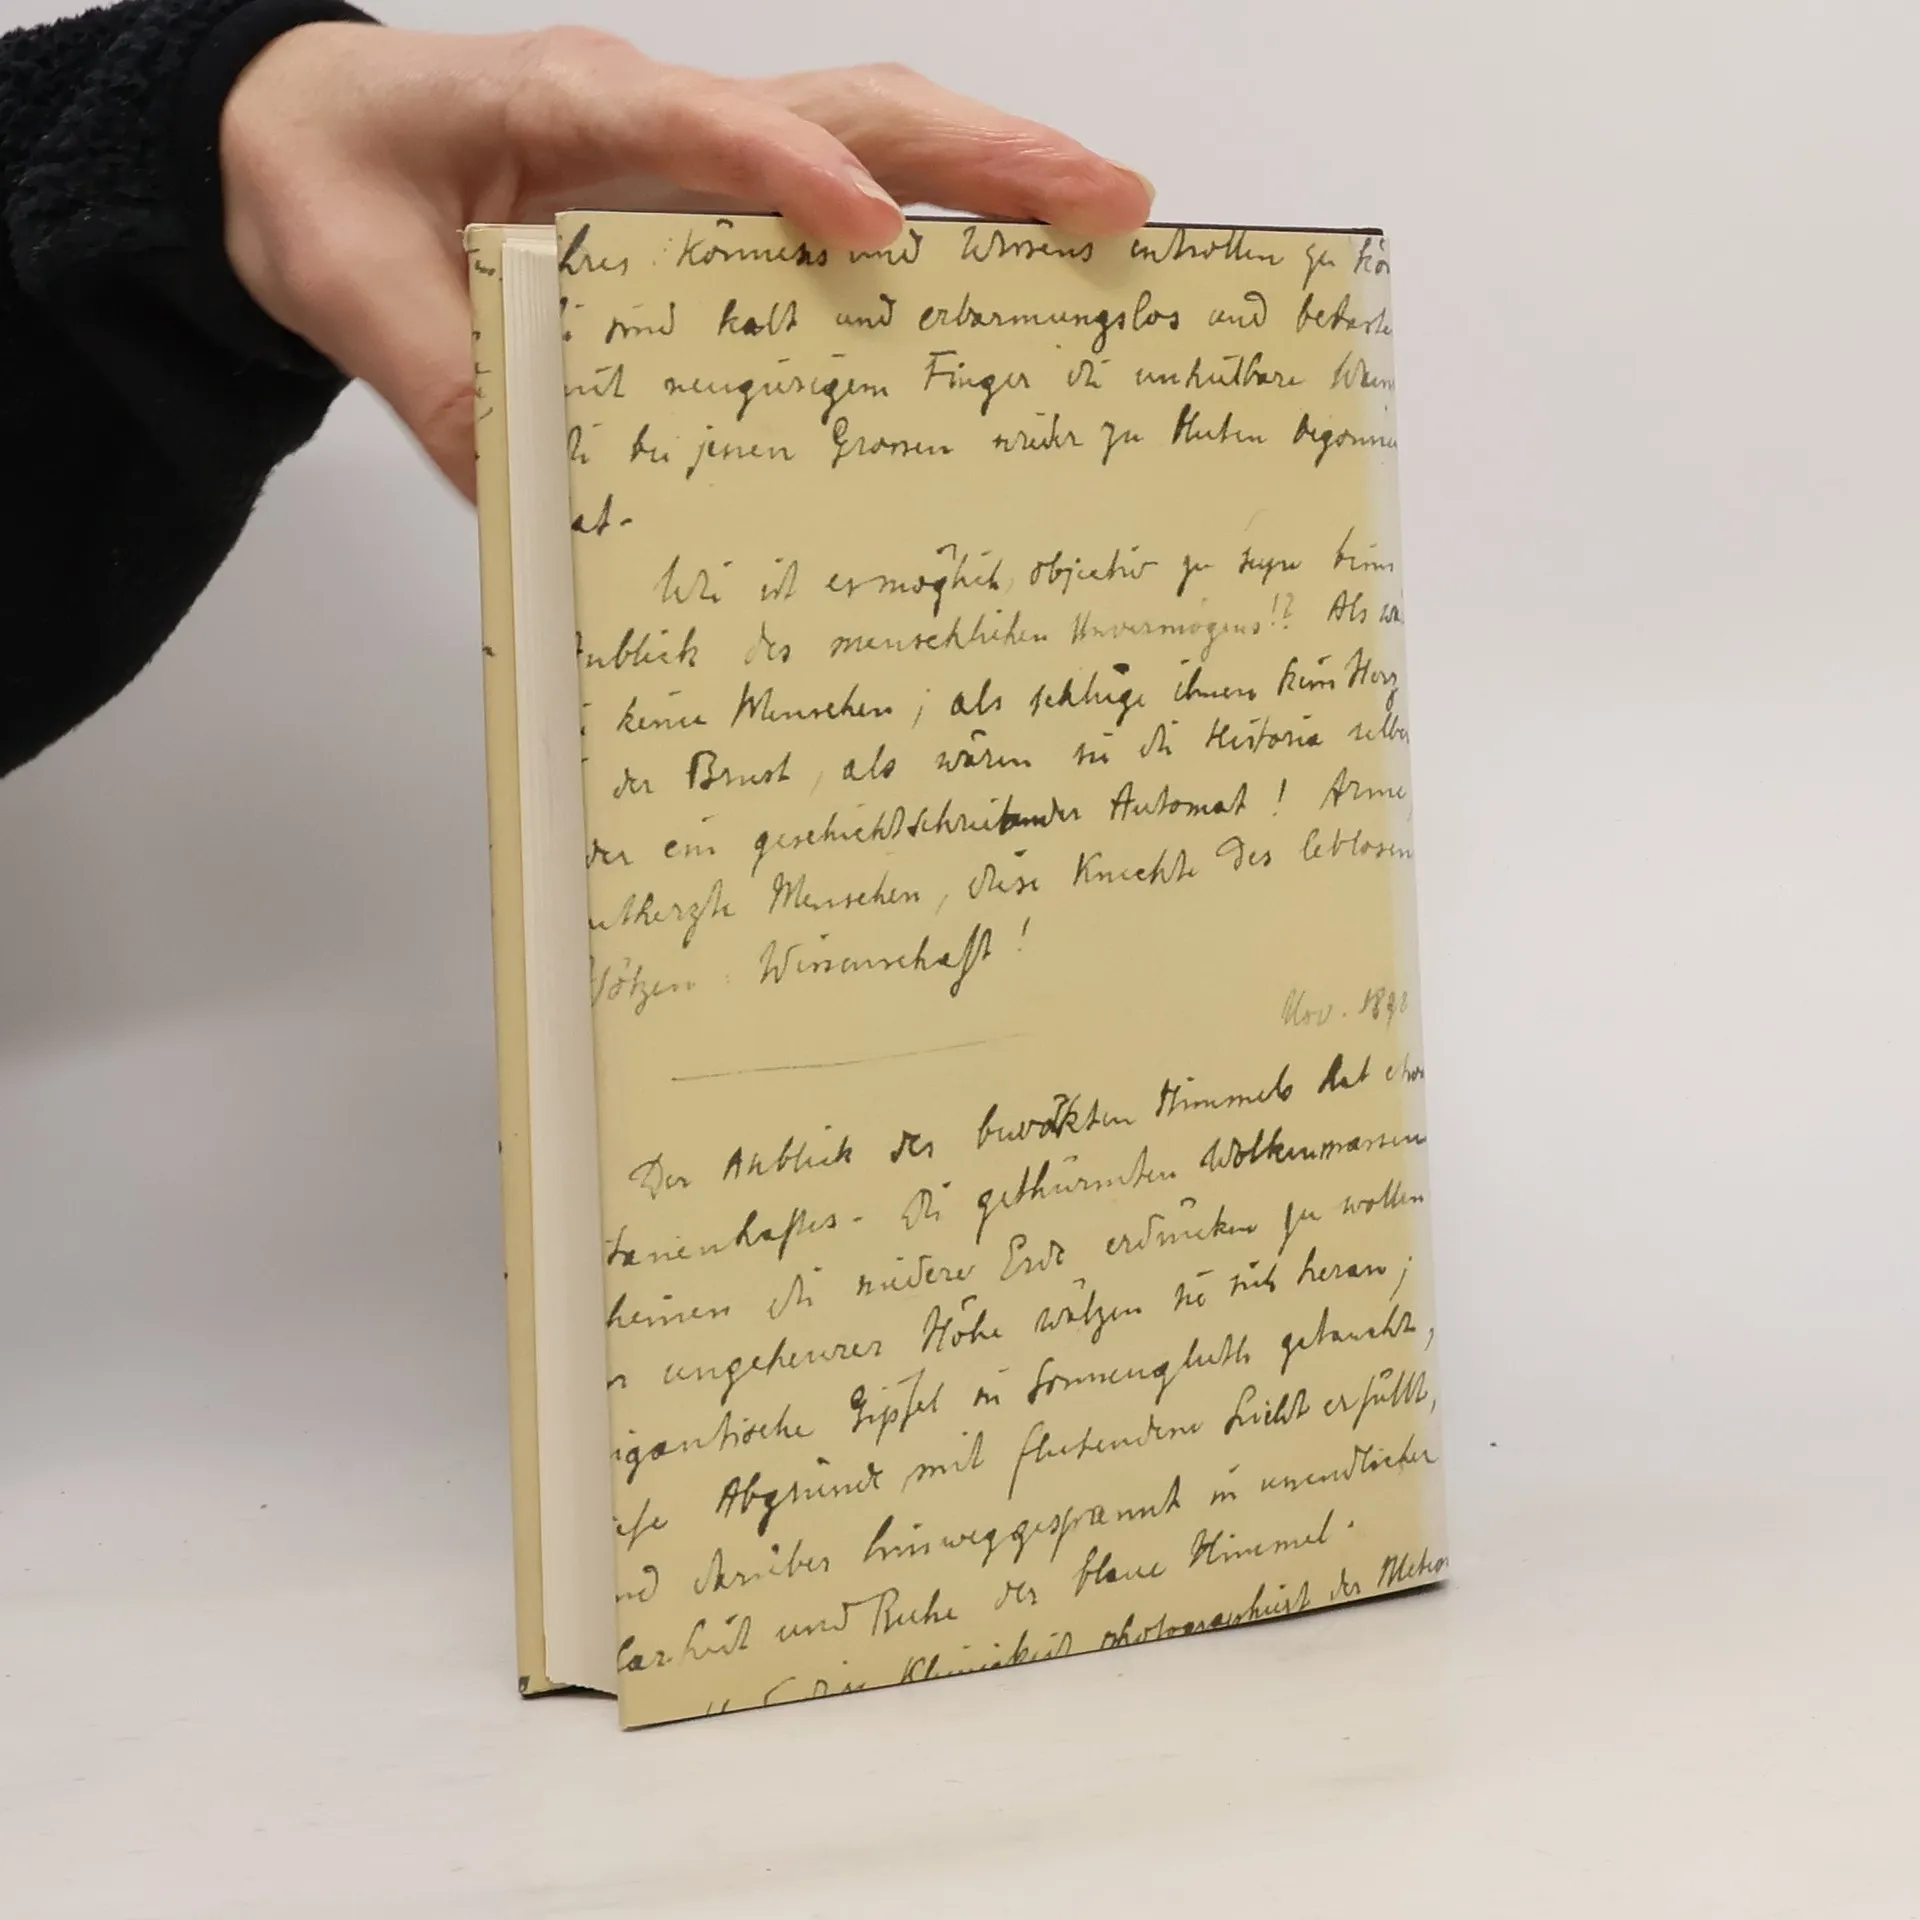 ihres Könnens und Wissens entrollen zu kön
sind kalt und erbarmungslos und betaste
mit neugierigem Finger die unheilbare Wun
die bei jenen Grossen wieder zu bluten begonne
at.
Wie ist es möglich, objectiv zu seyn beim
Anblick des menschlichen Unvermögens!? Als wä
keine Menschen; als schlüge ihnen kein Herz
der Brust, als wären sie die Historia selber
der ein geschichtschreibender Automat! Arme,
entherzte Menschen, diese Knechte des leblosen
Götzen: Wissenschaft!
Nov. 189
Der Anblick des bewölkten Himmels hat etwa
tanenhaftes. Die gethürmten Wolkenmassen
heinen die niedere Erde erdrücken zu wollen
ungeheurer Höhe wälzen sie sich heran;
igantische Gipfel in Sonnengluth getaucht,
iefe Abgründe mit flutendem Licht erfüllt,
nd darüber hinweggespannt in unendlicher
larheit und Ruhe der blaue Himmel.
Kleinigkeit photographiert der Meteor